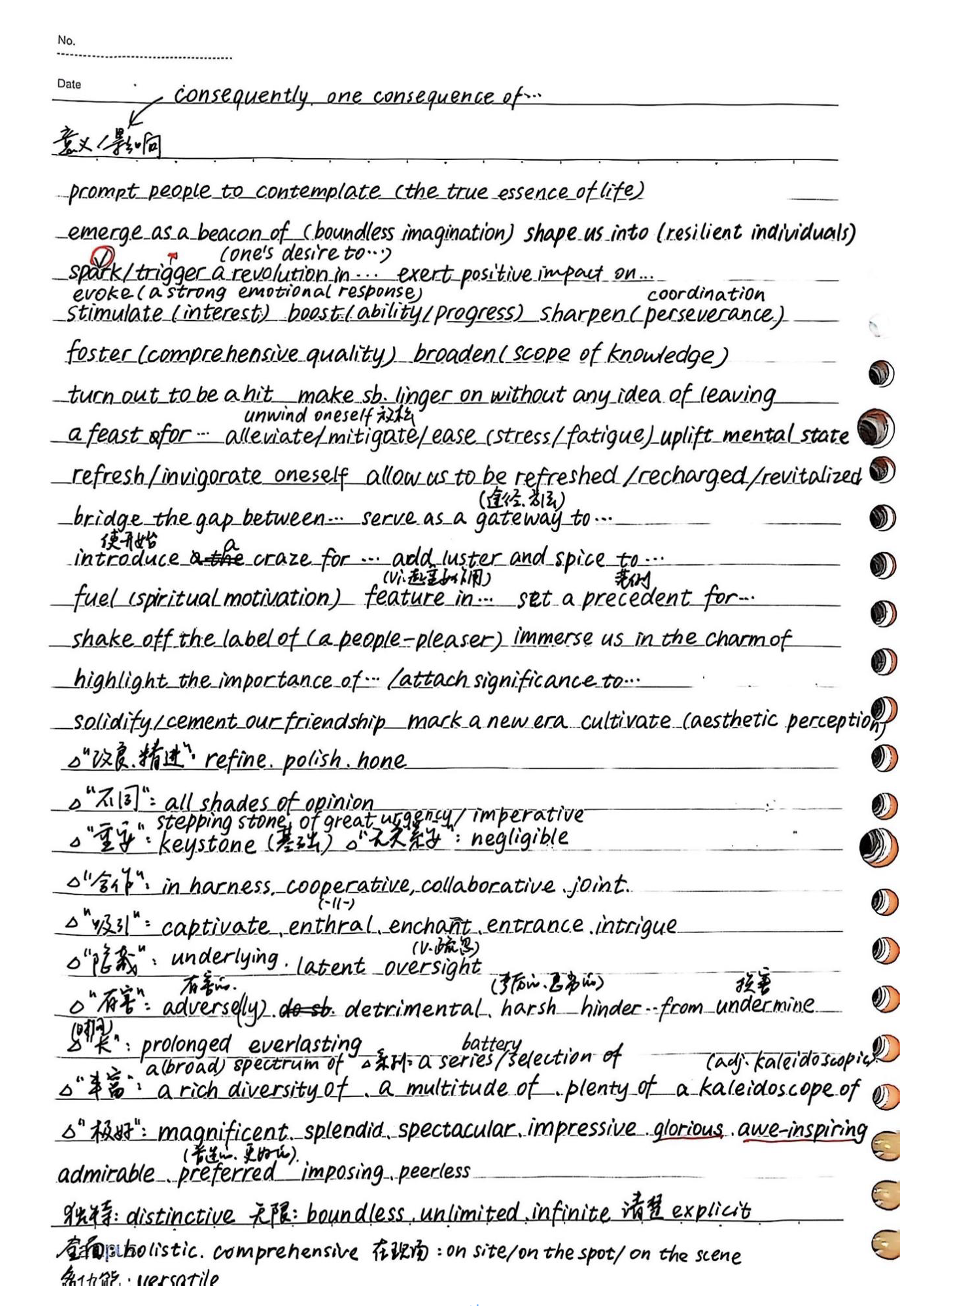 No.
Date
consequently, one consequence of...
意义/影响
prompt people to contemplate (the true essence of life)
emerge as a beacon of (boundless imagination) shape us into (resilient individuals)
(one's desire to...)
spark/trigger a revolution in... exert positive impact on...
evoke (a strong emotional response) coordination
stimulate (interest) boost (ability/progress) sharpen (perseverance)
foster (comprehensive quality) broaden (scope of knowledge)
turn out to be a hit make sb. linger on without any idea of leaving
unwind oneself 放松
a feast for... alleviate/mitigate/ease (stress/fatigue) uplift mental state
refresh/invigorate oneself allow us to be refreshed/recharged/revitalized
(途径、方法)
bridge the gap between... serve as a gateway to...
使开始 a
introduce craze for... add luster and spice to...
(vi.起重要作用) 范例
fuel (spiritual motivation) feature in... set a precedent for...
shake off the label of (a people-pleaser) immerse us in the charm of
highlight the importance of... /attach significance to...
solidify/cement our friendship mark a new era cultivate (aesthetic perception)
△"改良、精进": refine. polish. hone
△"不同": all shades of opinion
stepping stone, of great urgency/ imperative
△"重要": keystone (基础) △"无关紧要": negligible
△"合作": in harness, cooperative, collaborative. joint.
(-ll-)
△"吸引": captivate, enthral, enchant, entrance. intrigue
(v.疏忽)
△"隐藏": underlying. latent oversight
有害的. 损害
△"有害": adverse(ly). do sb. detrimental, harsh hinder...from undermine
(时间) battery
△"长": prolonged everlasting
a(broad) spectrum of △系列: a series/selection of (adj. kaleidoscopic)
△"丰富": a rich diversity of. a multitude of. plenty of a kaleidoscope of
△"极好": magnificent. splendid. spectacular. impressive. glorious. awe-inspiring
admirable. preferred imposing. peerless
独特: distinctive 无限: boundless. unlimited. infinite 清楚 explicit
全面: holistic. comprehensive 在现场: on site/on the spot/on the scene
多功能: versatile